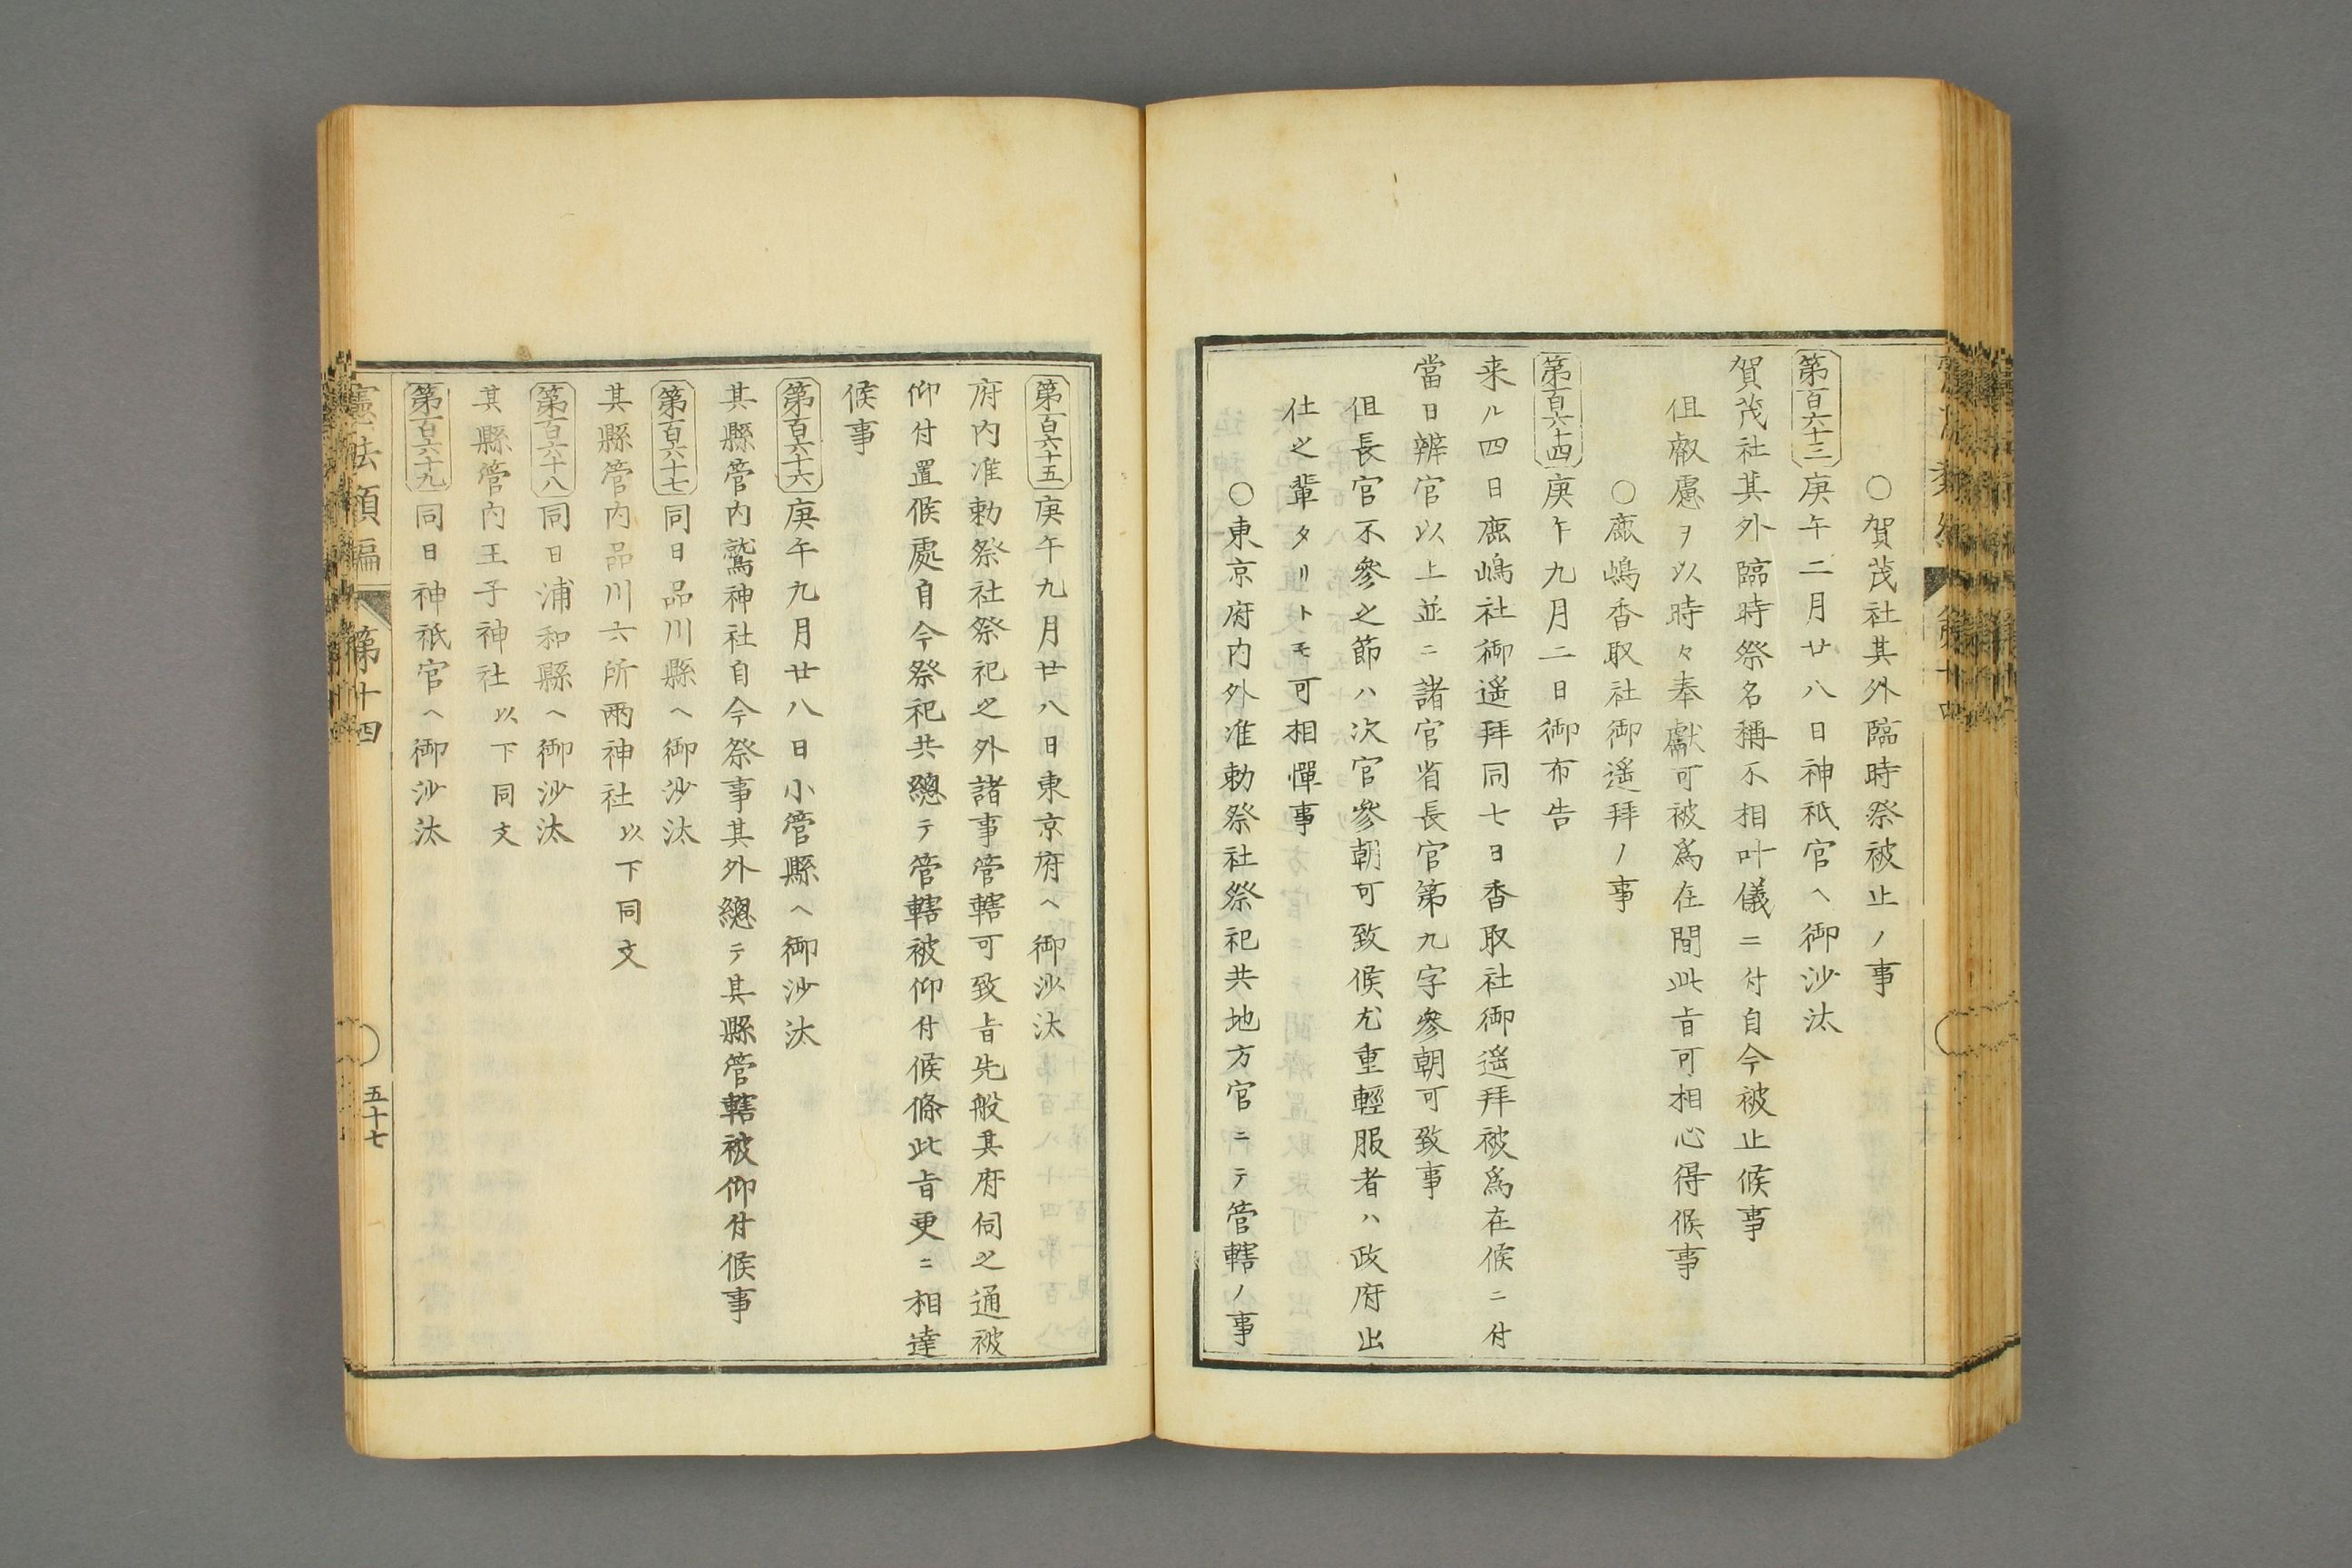 ○賀茂社其外臨時祭被止ノ事
第百六十三庚午二月廿八日神祇官ヘ御沙汰
賀茂社其外臨時祭名稱不相叶儀ニ付自今被止候事
但叡慮ヲ以時々奉獻可被爲在間此旨可相心得候事
○鹿嶋香取社御遙拜ノ事
第百六十四庚午九月二日御布告
来ル四日鹿嶋社御遙拜同七日香取社御遙拜被爲在候ニ付
當日辨官以上並ニ諸官省長官第九字參朝可致事
但長官不參之節ハ次官參朝可致候尤重輕服者ハ政府出
仕之輩タリトモ可相憚事
○東京府内外准勅祭社祭祀共地方官ニテ管轄ノ事
第百六十五庚午九月廿八日東京府ヘ御沙汰
府内准勅祭社祭祀之外諸事管轄可致旨先般其府伺之通被
仰付置候處自今祭祀共總テ管轄被仰付候條此旨更ニ相達
候事
第百六十六庚午九月廿八日小管縣ヘ御沙汰
其縣管内鷲神社自今祭事其外總テ其縣管轄被仰付候事
第百六十七同日品川縣ヘ御沙汰
其縣管内品川六所兩神社以下同文
第百六十八同日浦和縣ヘ御沙汰
其縣管内王子神社以下同文
第百六十九同日神祇官ヘ御沙汰
憲法類編 第十四 五十七